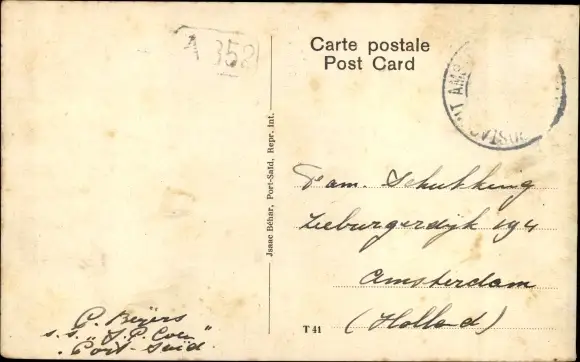 A 352
Carte postale
Post Card
Isaac Béhar, Port-Saïd, Repr. Int.
Fam. Schukking
Zeeburgerdijk 194
Amsterdam
(Holland)
P. Beÿers
s.s. „J.P. Coen"
Port-Said.
T 41